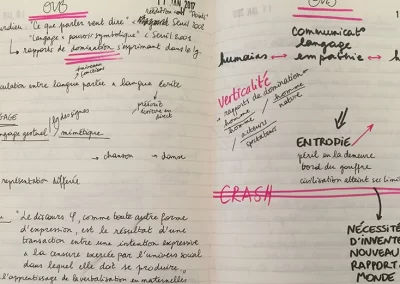 OVNI
11 JAN 2017
rdieu: "Ce que parler veut dire"
"Langage & pouvoir symbolique" Seuil 2001
↳ rapports de domination s'exprimant dans le lg
culation entre langue parlée & langue écrite
GAGE
lg des signes
ngage gestuel / mimétique
→ chanson → danse
représentation différée
"Le discours φ, comme toute autre forme
d'expression, est le résultat d'une
transaction entre une intention expressive
& la censure exercée par l'univers social
dans lequel elle doit se produire."
l'apprentissage de la verbalisation en maternelles
communicat°
langage
humains ↔ empathie ↔
verticalité
rapports de domination
homme / homme
homme / nature
acteurs / spectateurs
ENTRODIE
péril en la demeure
bord du gouffre
civilisation atteint ses limi
CRASH
NÉCESSITÉ
D'INVENTE
NOUVEAU
RAPPORT A
MONDE